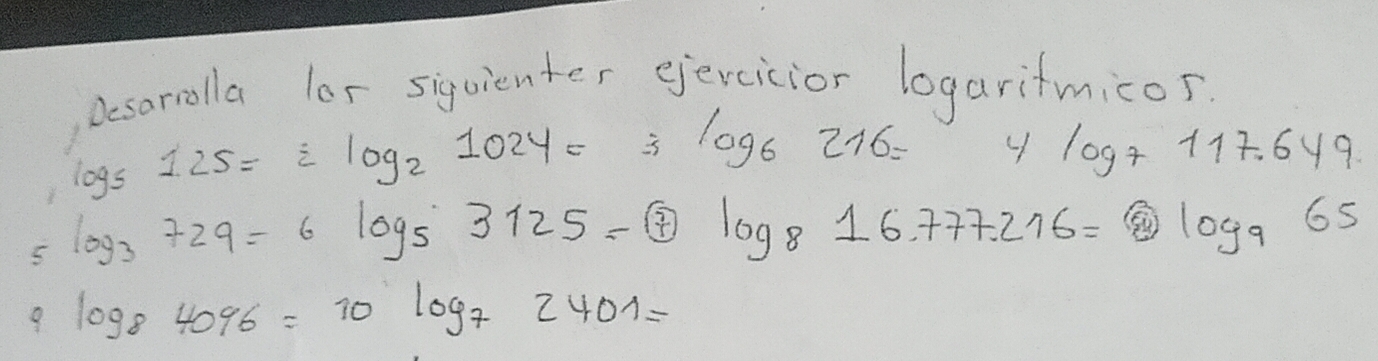 Desarrolla los siguientes ejercicios logaritmicos.
1 log5 125= 2 log2 1024= 3 log6 216= 4 log7 117.649.
5 log3 729= 6 log5 3125= 7 log8 16.777.216= 8 log9 65
9 log8 4096= 10 log7 2401=